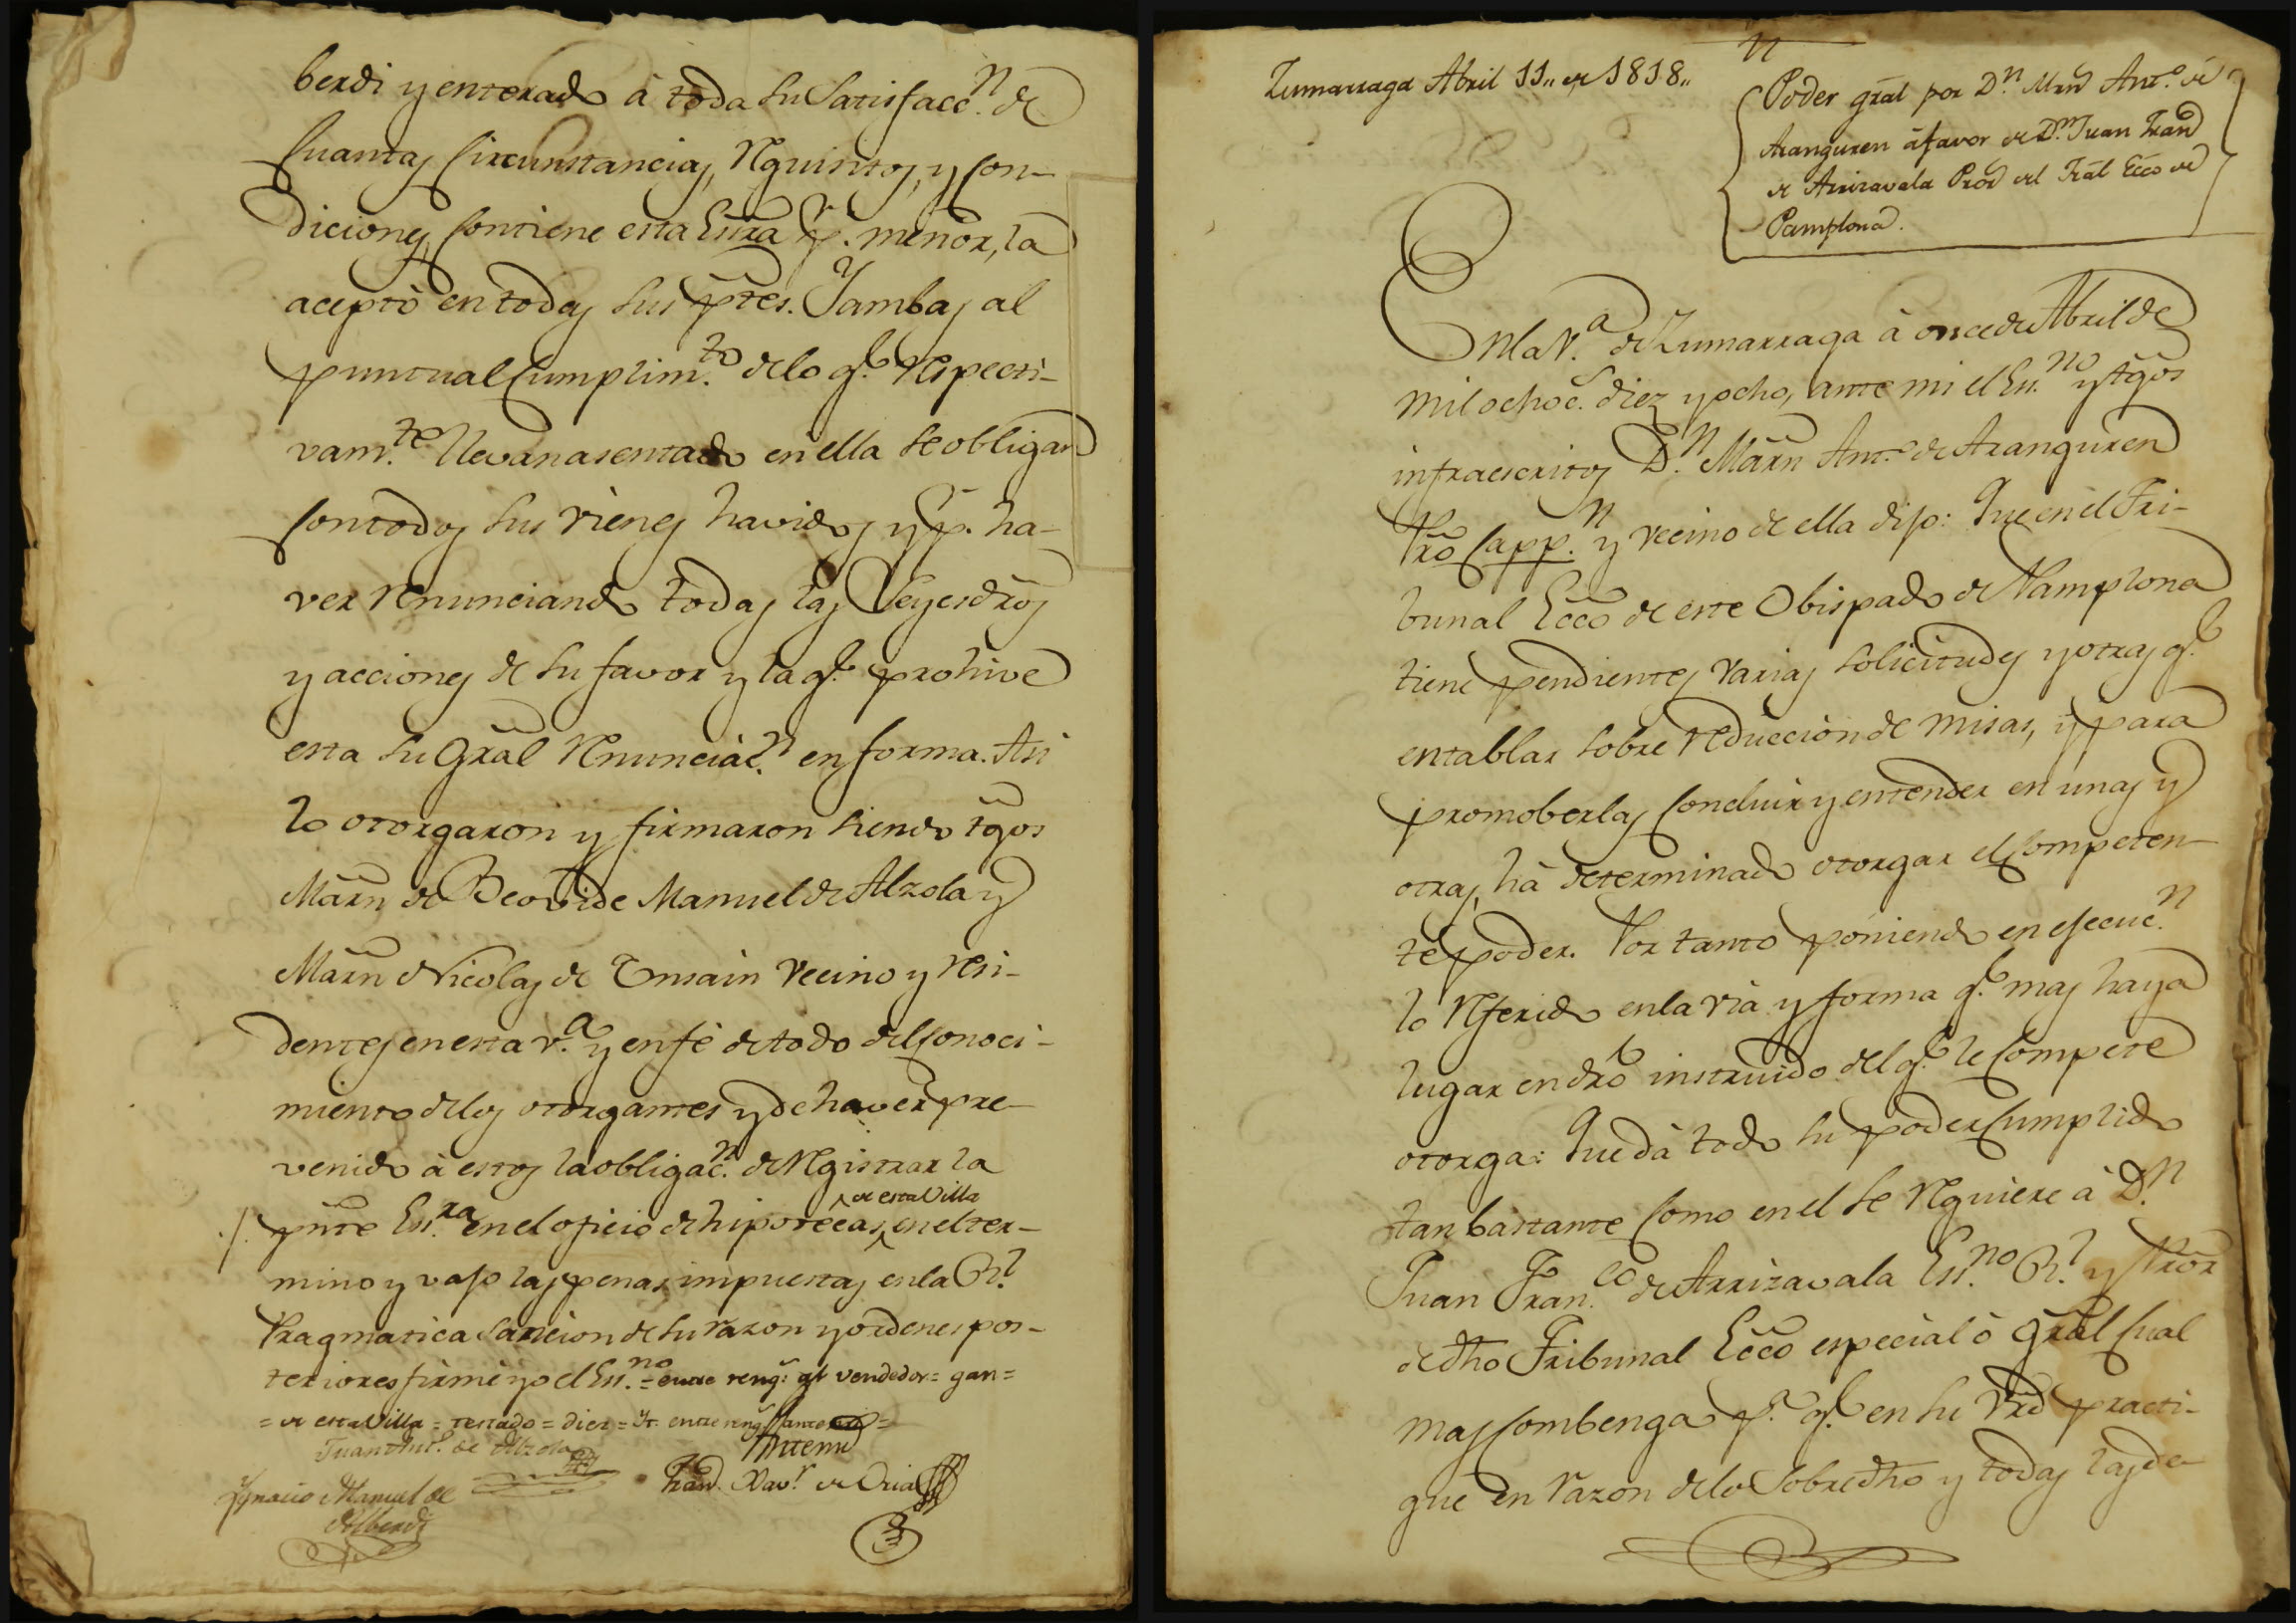 berdi y enterado à toda su Satisfacc.n de
Cuantas Circunstancias, Requisitos, y Con-
diciones Contiene esta Essra p.r menor, la
aceptó en todas sus ptes. Y ambas al
puntual Cumplim.to de lo q.e Respecti-
vam.te llevan asentado en ella se obligan
Con todos sus vienes havidos y p.r ha-
ver Renunciando todas las Leyes dros
y acciones de su favor y la q.e prohive
esta su Gral Renunciac.n en forma. Asi
lo otorgaron y firmaron siendo tgos
Marn de Beovide Manuel de Alzola y
Marn Nicolas de Insain vecino y resi-
dentes en esta v.a y en fé de todo del Conoci-
miento de los otorgantes y de haver pre-
venido à estos la obligac.n de Registrar la
de esta Villa
pnte Ess.ra en el oficio de hipotecas en el ter-
mino y vajo las penas impuestas en la R.l
Pragmatica Sancion de su razon y ordenes pos-
teriores firmé yo el Ess.no = entre reng.s vendedor = gan =
= de esta Villa = testado = diez = yt. entre reng.s
Juan Ant.o de Alzola
Ante mi
Ygnacio Manuel de
Alberdi
Fran.co Xav.r de Oria
Zumarraga Abril 11,, de 1818,,
Poder gral por D.n Mrn Ant.o de
Aranguren á favor de D.n Juan Franco
de Arrizavala Pror del Tral Ecco de
Pamplona.
En la V.a de Zumarraga à once de Abril de
mil ochoc.s diez y ocho, ante mi el Ess.no y tgos
infraescritos D.n Marn Ant.o de Aranguren
Pro Capp.n y vecino de ella dijo: Que en el Tri-
bunal Ecco de este Obispado de Pamplona
tiene pendientes varias solicitudes y otras q.e
entablar sobre reduccion de misas, y para
promoberlas Concluir y entender en unas y
otras, hà determinado otorgar el Competen-
te poder. Por tanto poniendo en ejecuc.n
lo Referido en la via y forma q.e mas haya
lugar en dro instruido del q.e le Compete
otorga: Que dà todo su poder Cumplido
tan bastante Como en el se Requiere à D.n
Juan Fran.co de Arrizavala Ess.no R.l y Pror
de dho Tribunal Ecco especial ò gral Cual
mas Combenga p.a q.e en su Vrd practi-
que en razon de lo Sobredho y todas las de-